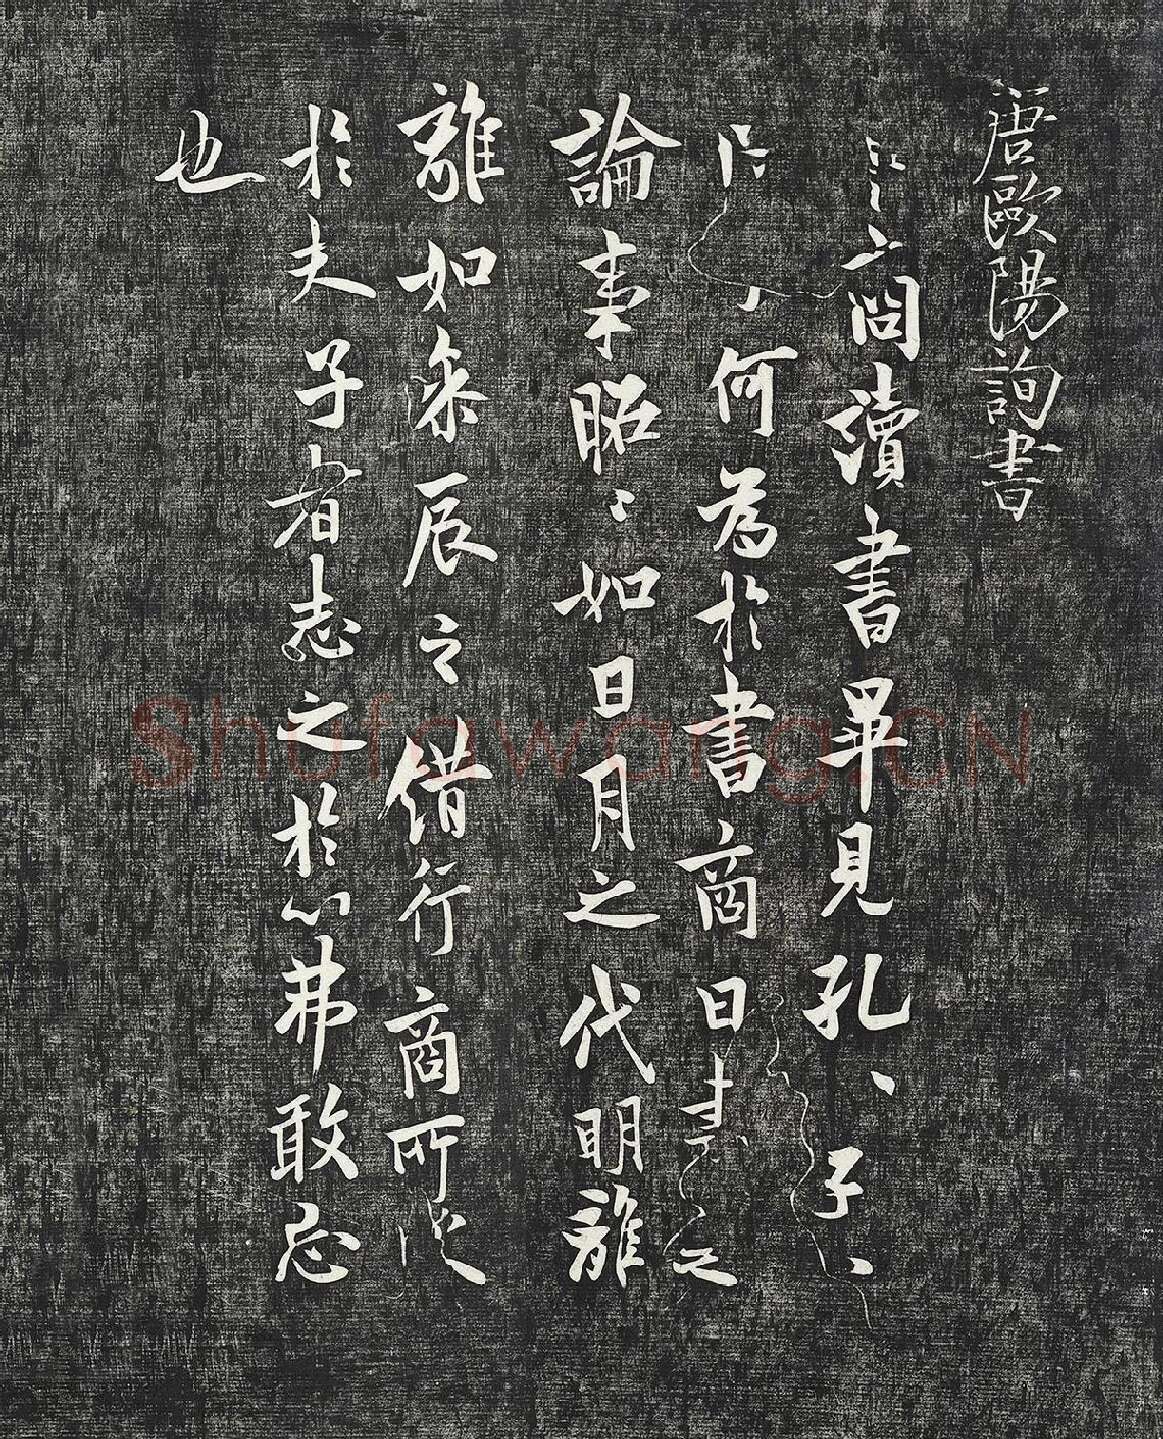 唐歐陽詢書
商讀書畢見孔〻子〻
何為於書商曰書之
論事昭〻如日月之代明離
離如參辰之錯行商所受
於夫子者志之於心弗敢忘
也
Shufawang.CN